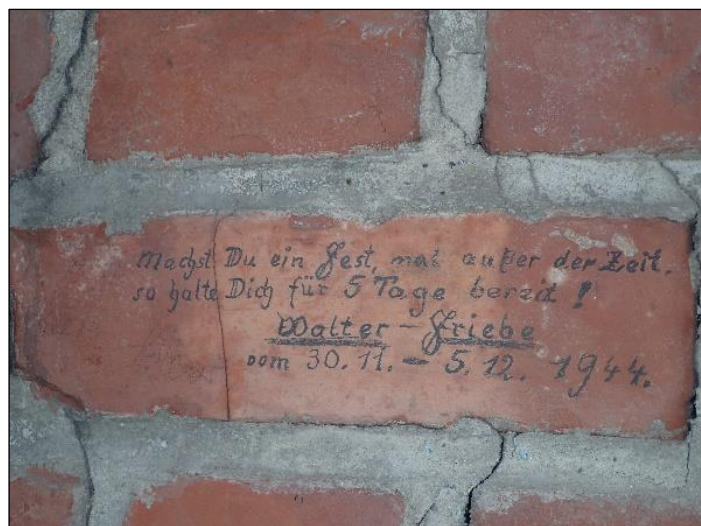 Machst Du ein Fest, mal außer der Zeit.
so halte Dich für 5 Tage bereit !
Walter - Friebe
vom 30.11. - 5.12. 1944.